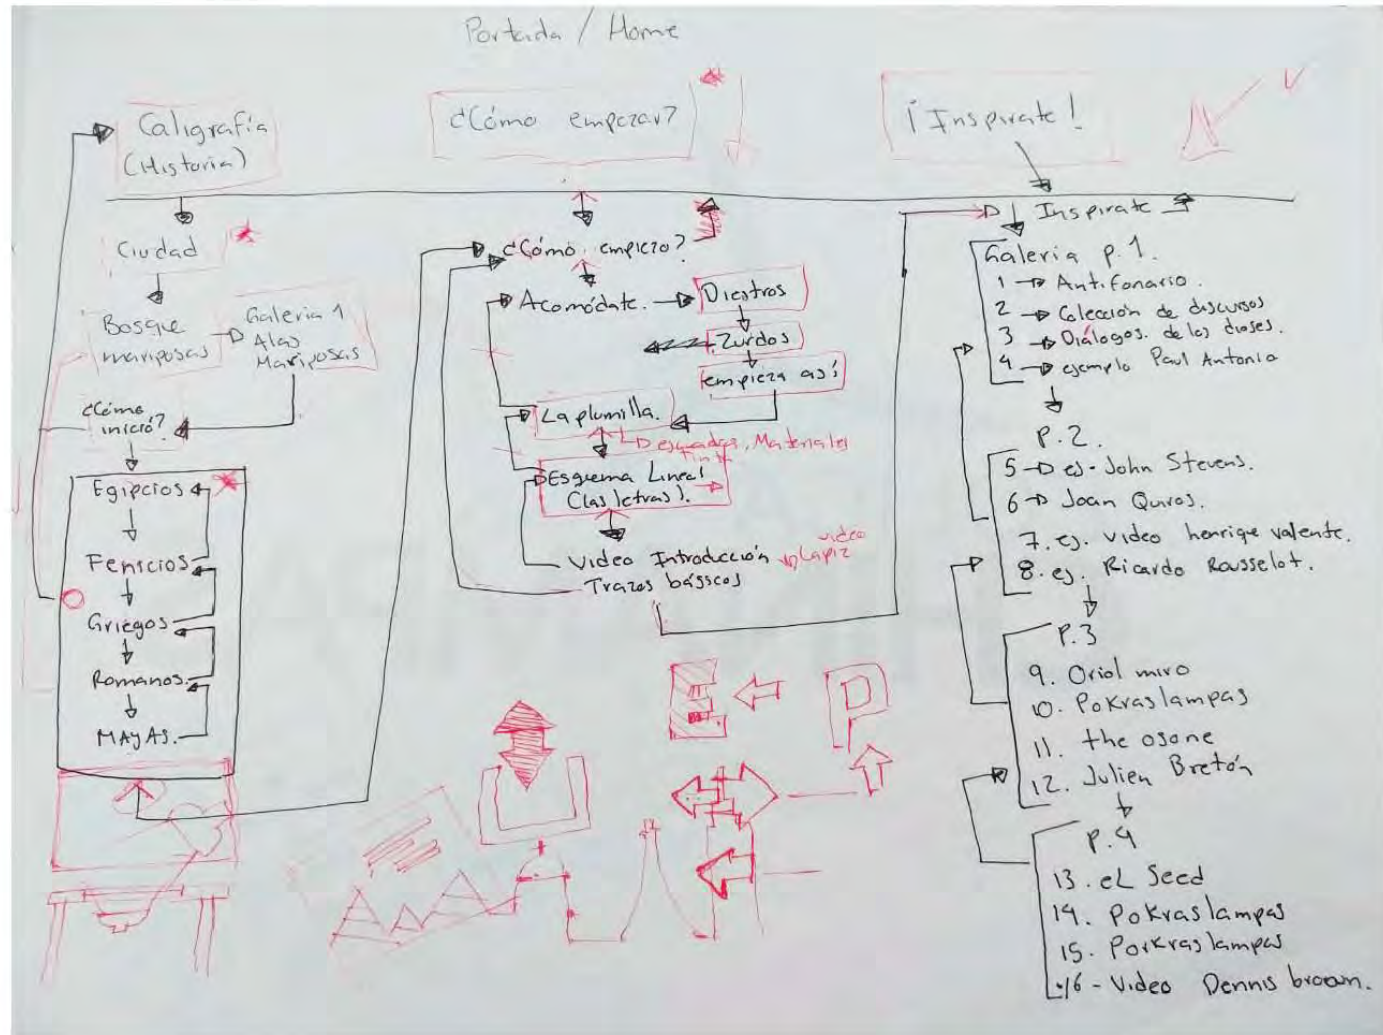 Portada / Home
Caligrafía
(Historia)
¿Cómo empezar?
¡Inspirate!
Ciudad
Bosque
mariposas
Galeria 1
Alas
Mariposas
¿Cómo
inició?
Egipcios
Fenicios
Griegos
Romanos.
MAYAS.
¿Cómo empiezo?
Acomódate.
Diestros
Zurdos
empieza así
La plumilla.
Materiales
Tinta
Esquema Lineal
(las letras).
Video Introducción
Trazos básicos
video
Lapiz
E
P
Inspirate
Galeria p. 1.
1 Antifonario.
2 Colección de discursos
3 Diálogos. de los dioses.
4 ejemplo Paul Antonio
P. 2.
5 ej - John Stevens.
6 Joan Quiros.
7. ej. video henrique valente.
8. ej. Ricardo Rousselot.
P. 3
9. Oriol miro
10. Pokraslampas
11. the osone
12. Julien Bretón
P. 4
13. eL Seed
14. Pokraslampas
15. Porkraslampas
16 - Video Dennis broown.